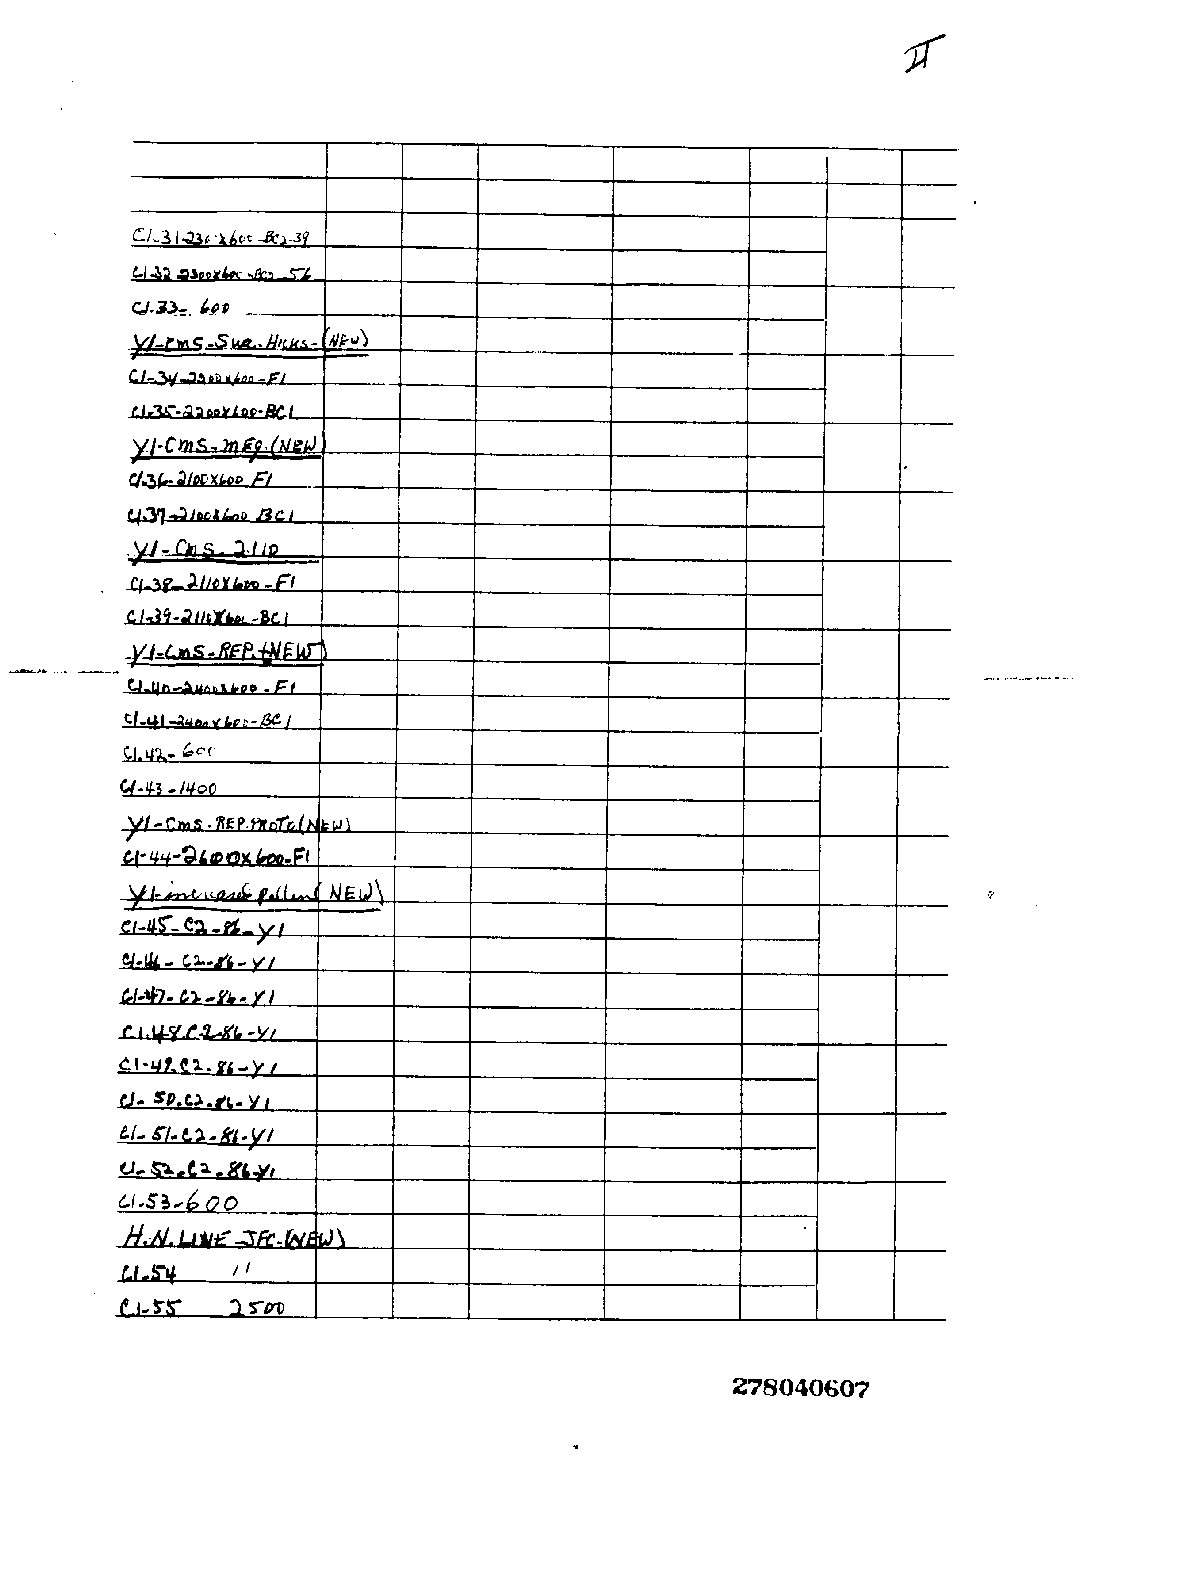 II
C1-31-230 x600-BC2-39
C1-32-2300x600-BC2-56
C1-33-600
Y1-CMS-Sue-Hicks-(NEW)
C1-34-2200x600-F1
C1-35-2200x600-BC1
Y1-CMS-MEQ.(NEW)
C1-36-2100x600 F1
C1-37-2100x600 BC1
Y1-CMS-2110
C1-38-2110x600-F1
C1-39-2110x600-BC1
Y1-CMS-REP.(NEW)
C1-40-2400x600-F1
C1-41-2400x600-BC1
C1.42-600
C1-43-1400
Y1-CMS-REP.PROTO(NEW)
C1-44-2600x600-F1
Y1-increased pollen(NEW)
C1-45-C2-86-Y1
C1-46-C2-86-Y1
C1-47-C2-86-Y1
C1.48.C2-86-Y1
C1-49.C2-86-Y1
C1-50.C2.86-Y1
C1-51-C2-86-Y1
C1-52.C2.86-Y1
C1-53-600
H.N.LINE-JFC-(NEW)
C1-54 11
C1-55 2500
278040607